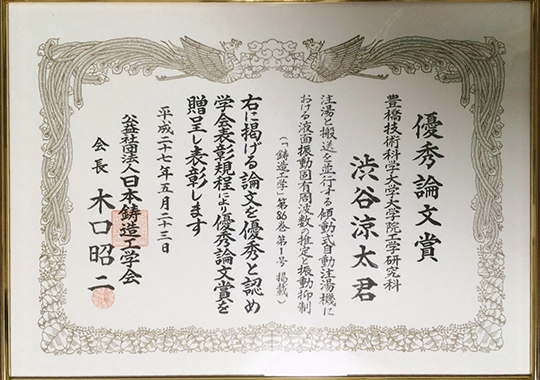 優秀論文賞
豊橋技術科学大学大学院工学研究科
渋谷涼太君
注湯と搬送を並行する傾動式自動注湯機に
おける液面振動固有周波数の推定と振動抑制
(「鋳造工学」第86巻第1号掲載)
右に掲げる論文を優秀と認め
学会表彰規程により優秀論文賞を
贈呈し表彰します
平成二十七年五月二十三日
公益社団法人日本鋳造工学会
会長 木口昭二